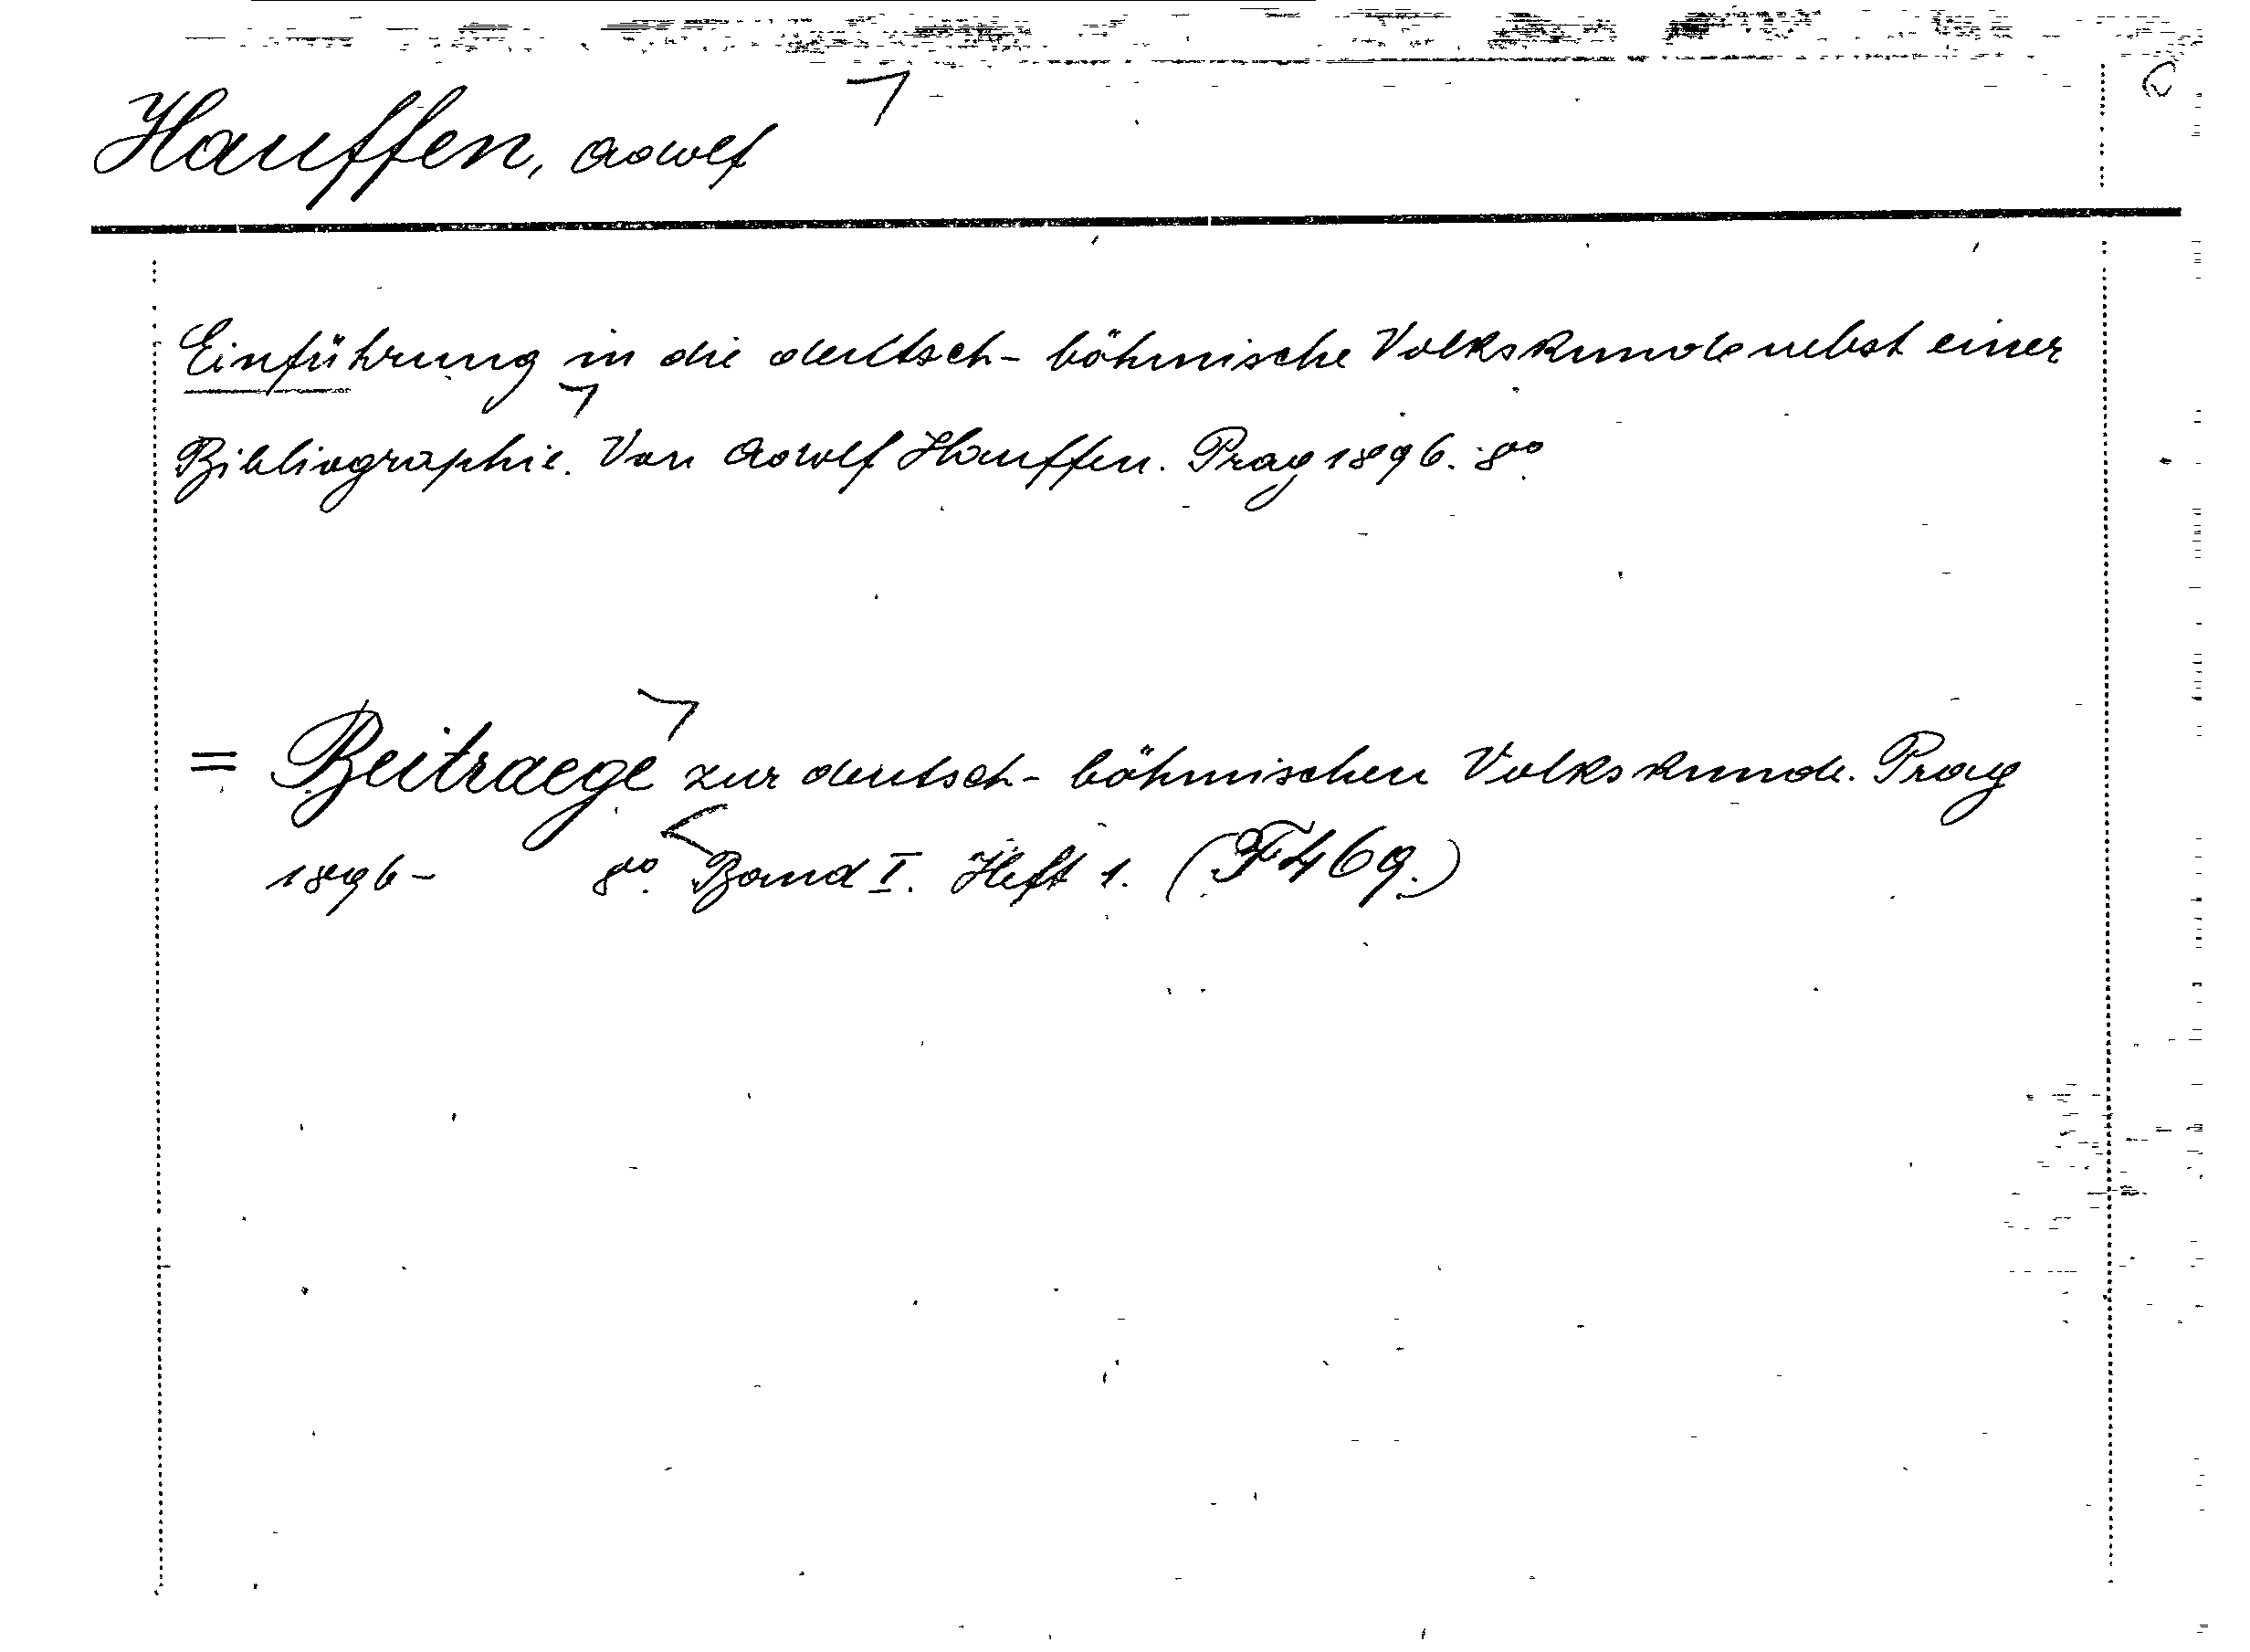 Hauffen, Adolf
Einführung in die deutsch-böhmische Volkskunde nebst einer
Bibliographie. Von Adolf Hauffen. Prag 1896. 8°.
= Beitraege zur deutsch-böhmischen Volkskunde. Prag
1896- 8°. Band I. Heft 1. (F469.)